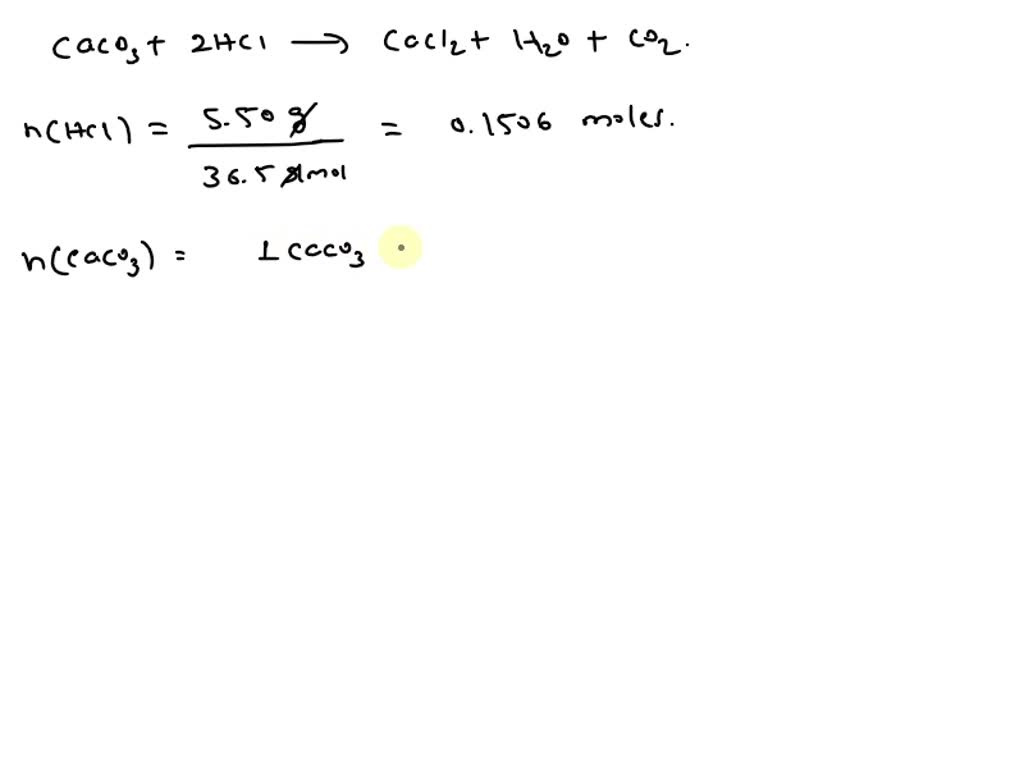 CaCO3 + 2HCl → CaCl2 + H2O + CO2.
n(HCl) = 5.50 g / 36.5 g/mol = 0.1506 moles.
n(CaCO3) = 1 CaCO3